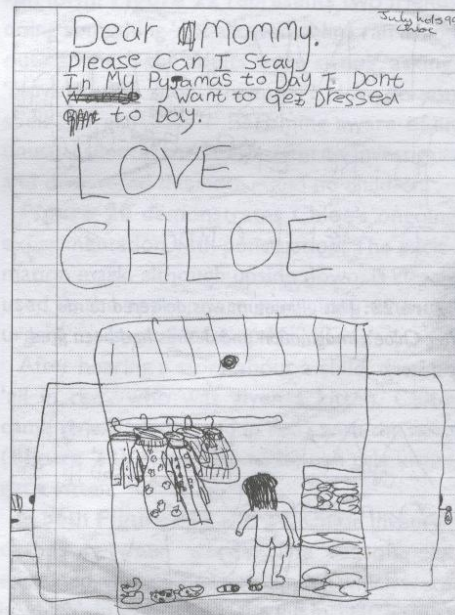 July hols 99
Chloe
Dear Mommy.
Please Can I Stay
In My Pyjamas to Day I Dont
Want to Get Dressed
to Day.
LOVE
CHLOE